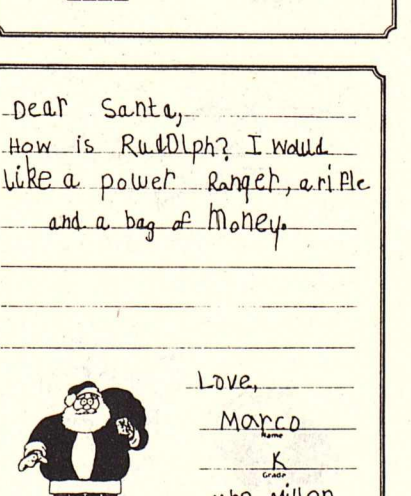 Dear Santa,
How is RudDlph? I would
like a power Ranger, a rifle
and a bag of Money.
Love,
Marco
Name
K
Grade